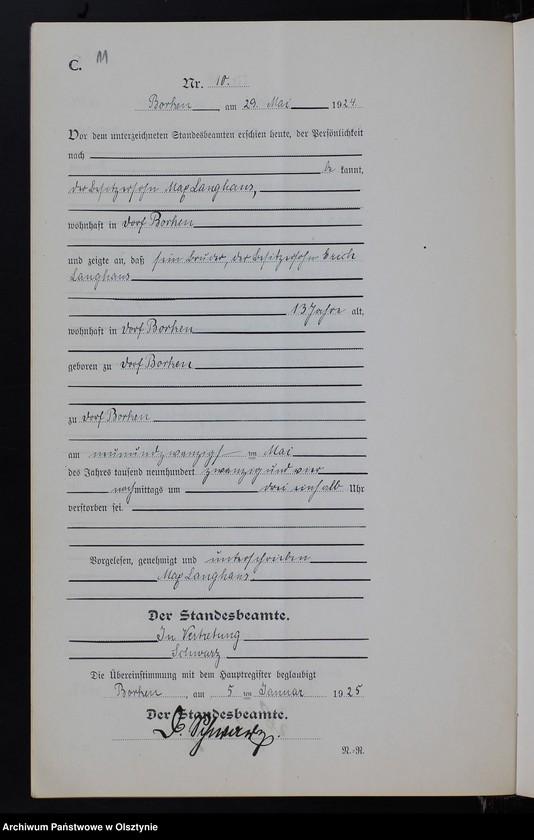 C. 11
Nr. 10.
Borken, am 29. Mai 1924.
Vor dem unterzeichneten Standesbeamten erschien heute, der Persönlichkeit
nach
be kannt,
der Besitzersohn Max Langhans,
wohnhaft in Dorf Borken
und zeigte an, daß sein Bruder, der Besitzersohn Erich
Langhans
13 Jahre alt,
wohnhaft in Dorf Borken
geboren zu Dorf Borken
zu Dorf Borken
am neunundzwanzigst en Mai
des Jahres tausend neunhundert zwanzig und vier
nachmittags um drei einhalb Uhr
verstorben sei.
Vorgelesen, genehmigt und unterschrieben
Max Langhans.
Der Standesbeamte.
In Vertretung
Schwarz
Die Übereinstimmung mit dem Hauptregister beglaubigt
Borken, am 5 ten Januar 1925
Der Standesbeamte.
Schwarz
N.-R.
Archiwum Państwowe w Olsztynie